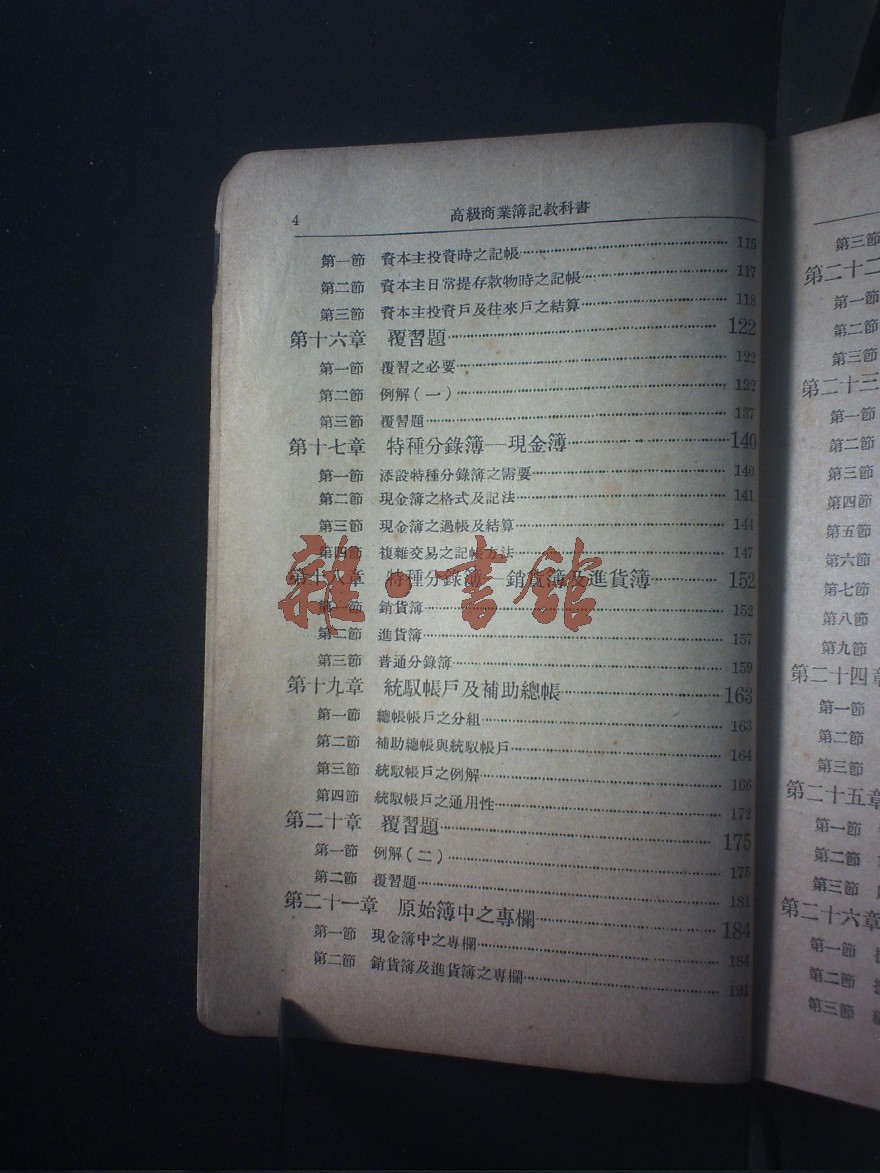 4
高級商業簿記教科書
第一節 資本主投資時之記帳 115
第二節 資本主日常提存款物時之記帳 117
第三節 資本主投資戶及往來戶之結算 118
第十六章 覆習題 122
第一節 覆習之必要 122
第二節 例解(一) 122
第三節 覆習題 137
第十七章 特種分錄簿—現金簿 140
第一節 添設特種分錄簿之需要 140
第二節 現金簿之格式及記法 141
第三節 現金簿之過帳及結算 144
第四節 複雜交易之記帳方法 147
第十八章 特種分錄簿—銷貨簿及進貨簿 152
第一節 銷貨簿 152
第二節 進貨簿 157
第三節 普通分錄簿 159
第十九章 統馭帳戶及補助總帳 163
第一節 總帳帳戶之分組 163
第二節 補助總帳與統馭帳戶 164
第三節 統馭帳戶之例解 166
第四節 統馭帳戶之通用性 172
第二十章 覆習題 175
第一節 例解(二) 175
第二節 覆習題 181
第二十一章 原始簿中之專欄 184
第一節 現金簿中之專欄 184
第二節 銷貨簿及進貨簿之專欄 191
雜·書館
第三節
第二十二
第一節
第二節
第三節
第二十三
第一節
第二節
第三節
第四節
第五節
第六節
第七節
第八節
第九節
第二十四章
第一節
第二節
第三節
第二十五章
第一節
第二節
第三節
第二十六章
第一節
第二節
第三節